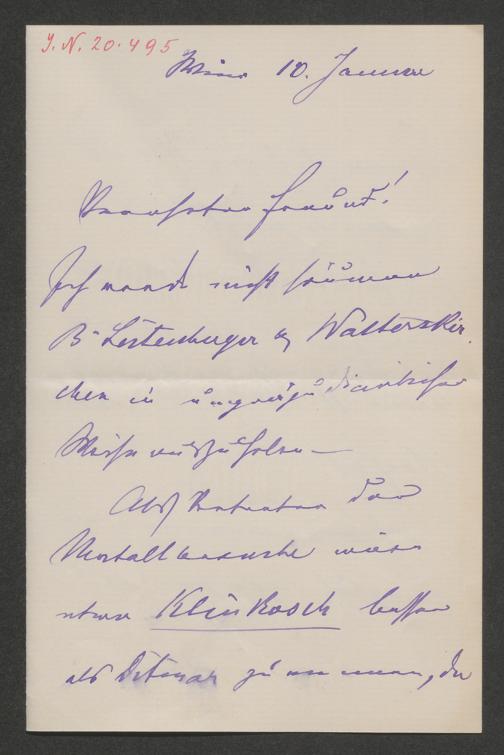 J. N. 20.495
Wien 10. Januar
Verehrter Freund!
Ich werde nicht säumen
B Leitenberger & Walterskir
chen in
Weise auszuholen —
Als Vertreter der
Metallbranche wäre
etwa Klinkosch besser
als Ditmar zu nennen, da